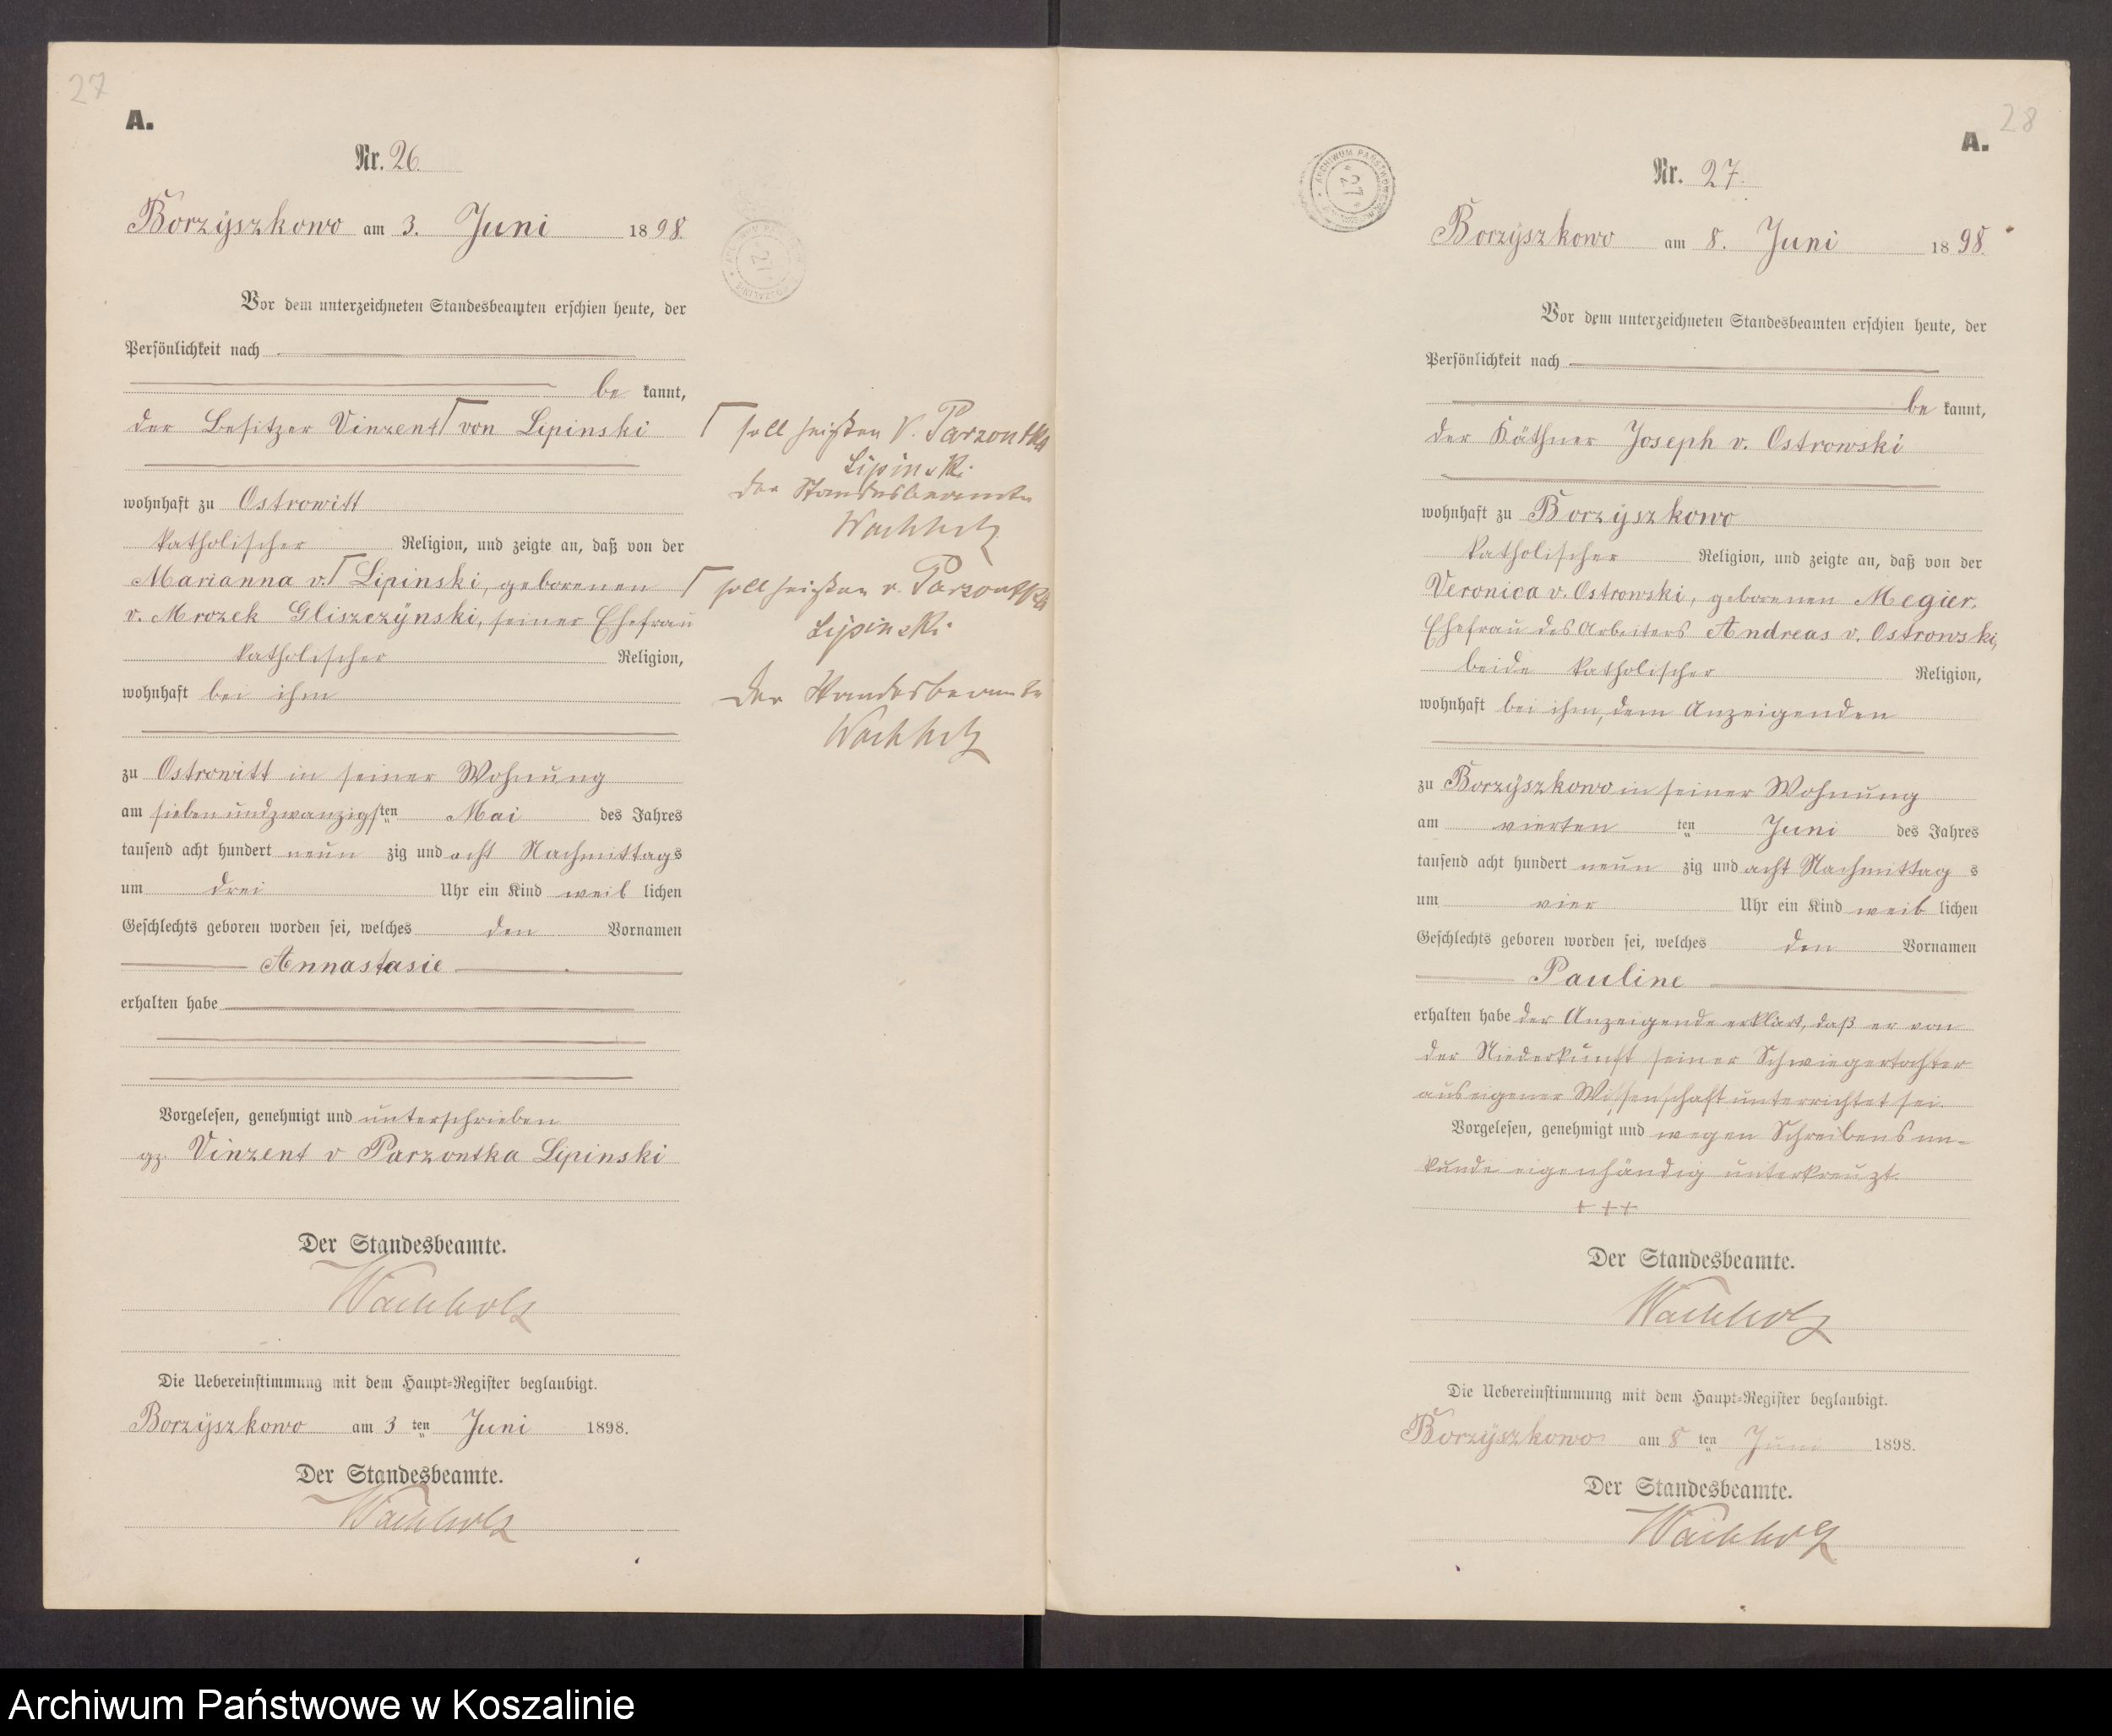 27
A.
Nr. 26.
Borzÿszkowo am 3. Juni 1898.
Vor dem unterzeichneten Standesbeamten erschien heute, der
Persönlichkeit nach
be kannt,
der Besitzer Vinzent Γ von Lipinski
wohnhaft zu Ostrowitt
katholischer Religion, und zeigte an, daß von der
Marianna v. Γ Lipinski, geborenen
v. Mrozek Gliszczÿnski, seiner Ehefrau
katholischer Religion,
wohnhaft bei ihm
zu Ostrowitt in seiner Wohnung
am sieben undzwanzigsten Mai des Jahres
tausend acht hundert neun zig und acht Nachmittags
um drei Uhr ein Kind weib lichen
Geschlechts geboren worden sei, welches den Vornamen
Annastasie
erhalten habe
Vorgelesen, genehmigt und unterschrieben
gz. Vinzent v Parzontka Lipinski
Der Standesbeamte.
Wachholz
Die Uebereinstimmung mit dem Haupt=Register beglaubigt.
Borzÿszkowo am 3 ten Juni 1898.
Der Standesbeamte.
Wachholz
Γ soll heißen v. Parzontka
Lipinski.
Der Standesbeamte
Wachholz
Γ soll heißen v. Parzontka
Lipinski
Der Standesbeamte
Wachholz
28
A.
ARCHIWUM PAŃSTWOWE
* 27 *
Nr. 27.
Borzÿszkowo am 8. Juni 1898.
Vor dem unterzeichneten Standesbeamten erschien heute, der
Persönlichkeit nach
be kannt,
der Käthner Joseph v. Ostrowski
wohnhaft zu Borzÿszkowo
katholischer Religion, und zeigte an, daß von der
Veronica v. Ostrowski, geborenen Megier,
Ehefrau des Arbeiters Andreas v. Ostrowski,
beide katholischer Religion,
wohnhaft bei ihm, dem Anzeigenden
zu Borzÿszkowo in seiner Wohnung
am vierten ten Juni des Jahres
tausend acht hundert neun zig und acht Nachmittag s
um vier Uhr ein Kind weib lichen
Geschlechts geboren worden sei, welches den Vornamen
Pauline
erhalten habe der Anzeigende erklärt, daß er von
der Niederkunft seiner Schwiegertochter
aus eigener Wissenschaft unterrichtet sei.
Vorgelesen, genehmigt und wegen Schreibens un-
kunde eigenhändig unterkreuzt.
+++
Der Standesbeamte.
Wachholz
Die Uebereinstimmung mit dem Haupt=Register beglaubigt.
Borzÿszkowo am 8 ten Juni 1898.
Der Standesbeamte.
Wachholz
Archiwum Państwowe w Koszalinie